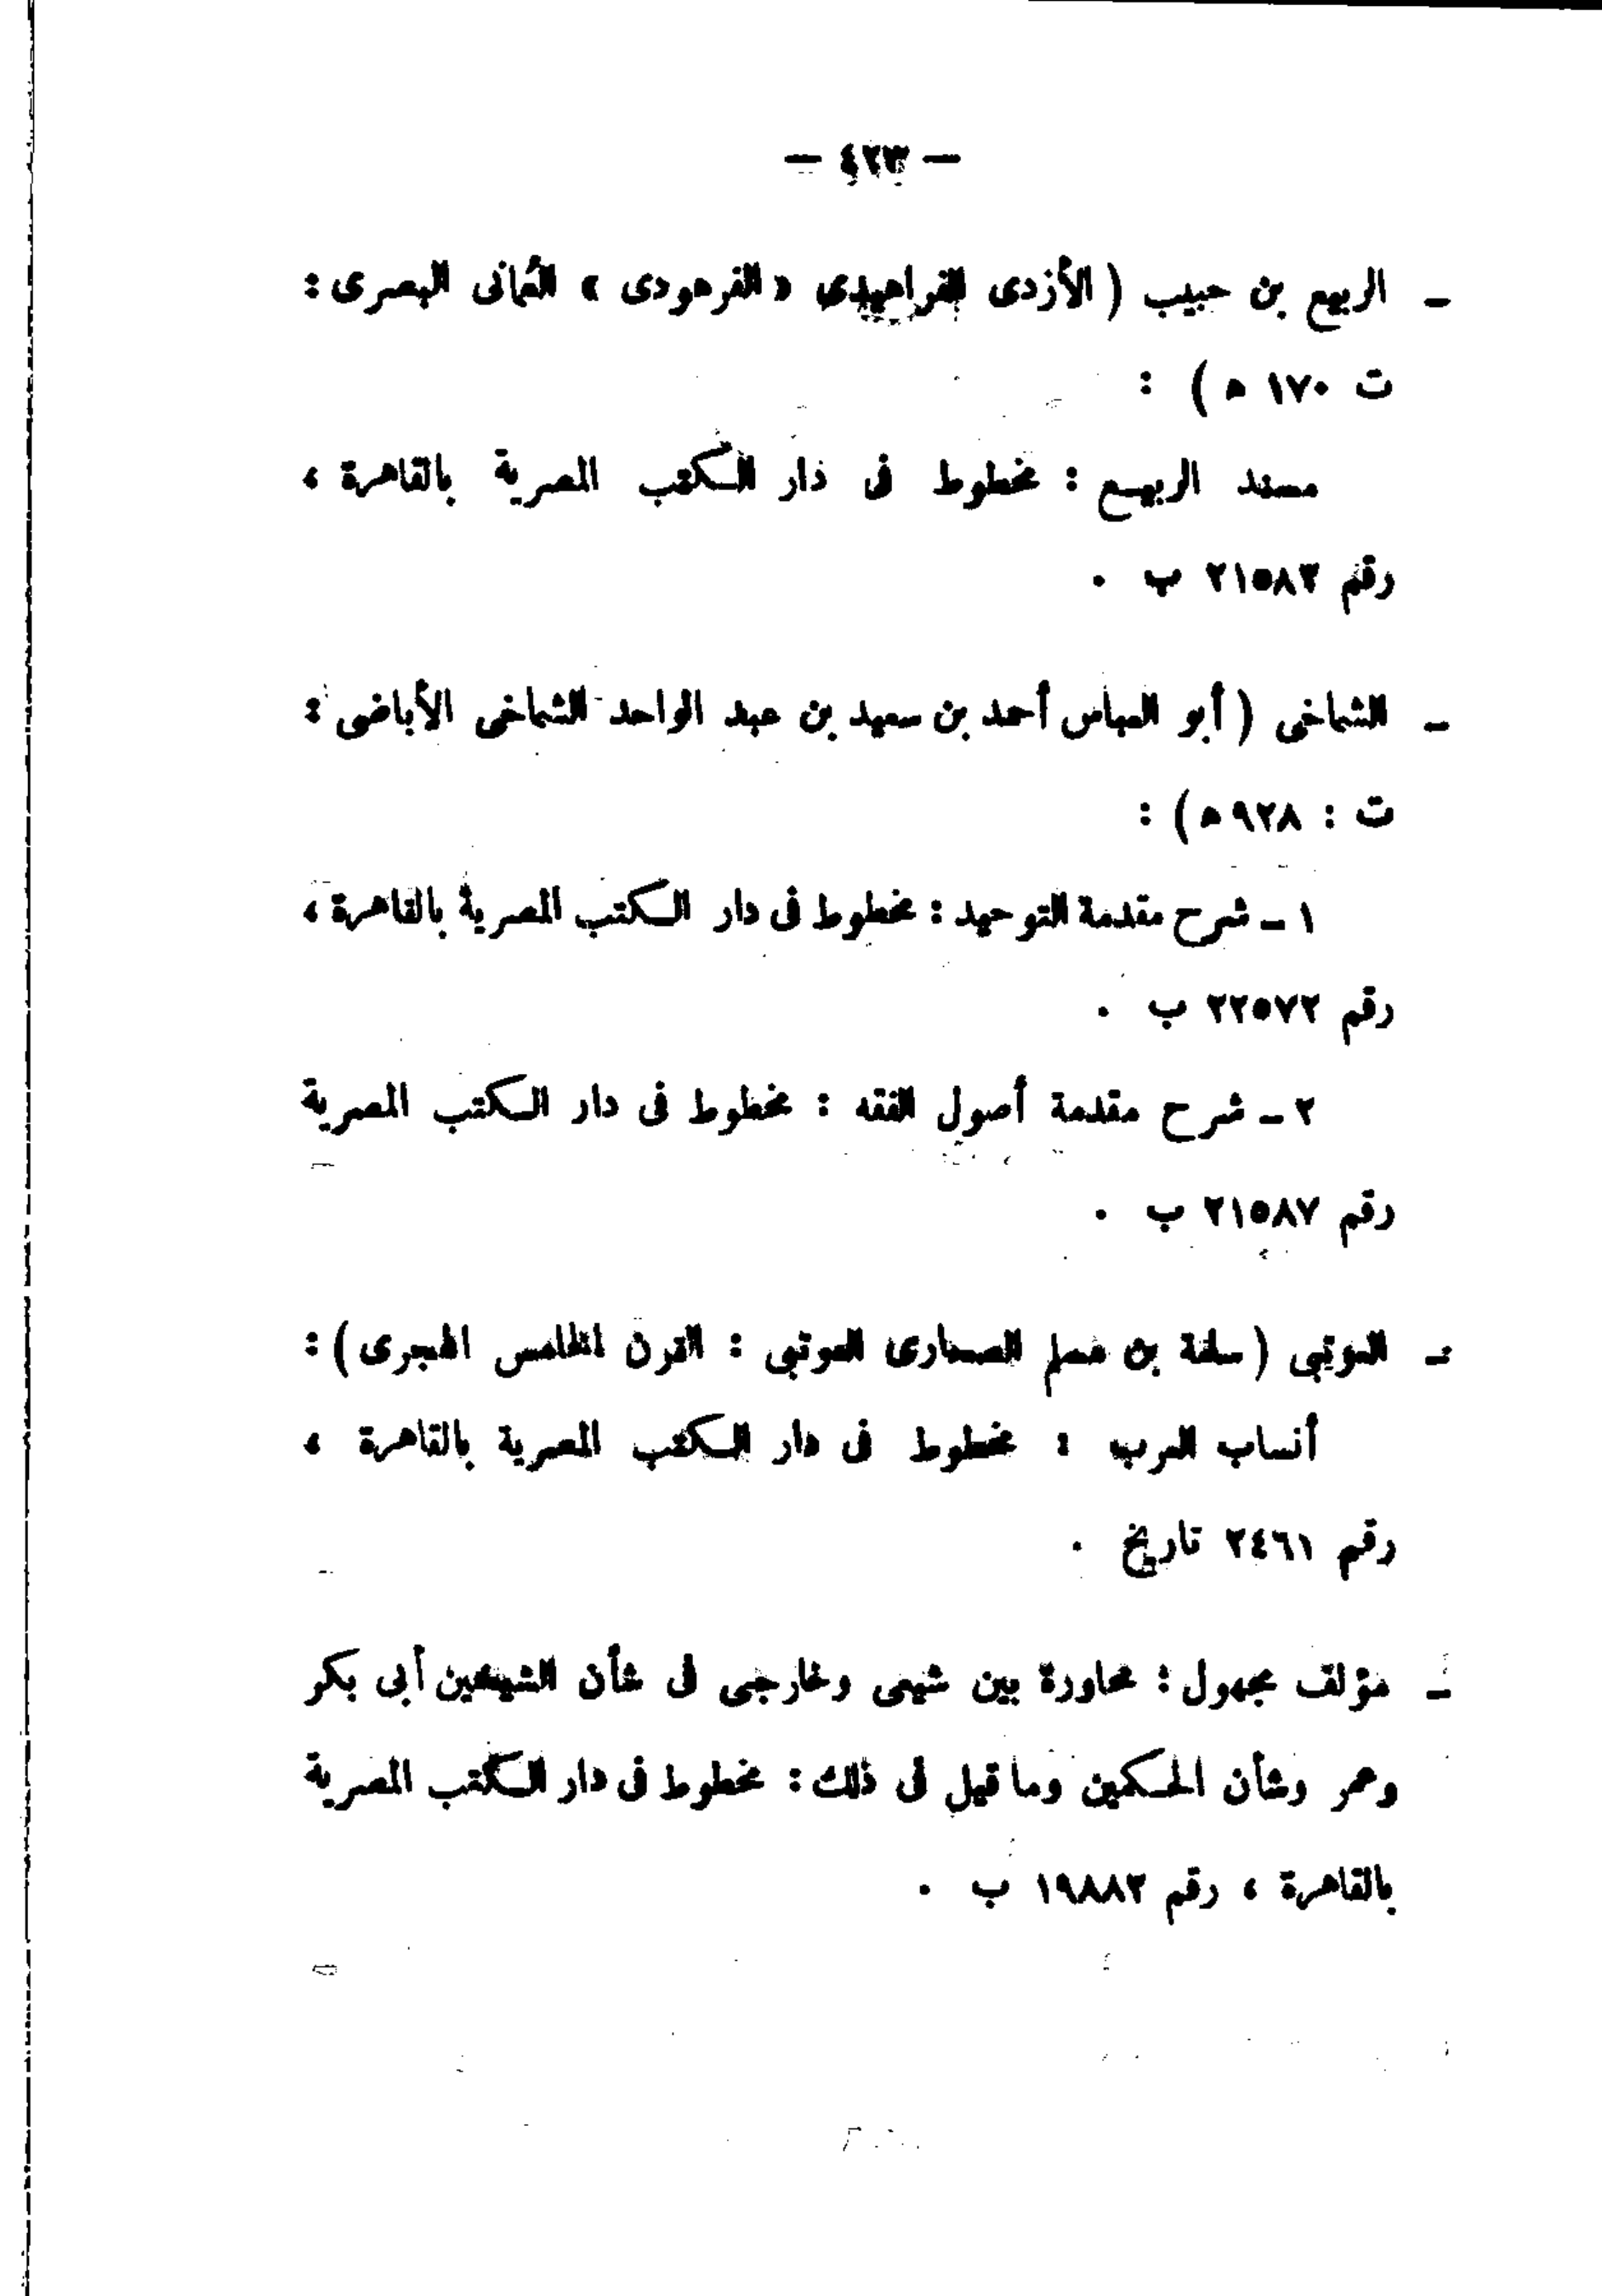 — ٤٢٣ —
ـ الربيع بن حبيب ( الأزدى الفراهيدى « الفرهودى » العُمانى البصرى :
ت ١٧٠ ه ) :
مسند الربيع : مخطوط فى دار الكتب المصرية بالقاهرة ،
رقم ٢١٥٨٣ ب .
ـ الشماخى ( أبو العباس أحمد بن سعيد بن عبد الواحد الشماخى الأباضى :
ت : ٩٢٨ ه ) :
١ ـ شرح مقدمة التوحيد : مخطوط فى دار الكتب المصرية بالقاهرة ،
رقم ٢٢٥٧٢ ب .
٢ ـ شرح مقدمة أصول الفقه : مخطوط فى دار الكتب المصرية
رقم ٢١٥٨٧ ب .
ـ العوتبى ( سلمة بن مسلم الصحارى العوتبى : القرن الخامس الهجرى ) :
أنساب العرب : مخطوط فى دار الكتب المصرية بالقاهرة ،
رقم ٢٤٦١ تاريخ .
ـ مؤلف مجهول : محاورة بين شيعى وخارجى فى شأن الشيخين أبى بكر
وعمر وشأن الحكمين وما قيل فى ذلك : مخطوط فى دار الكتب المصرية
بالقاهرة ، رقم ١٩٨٨٣ ب .